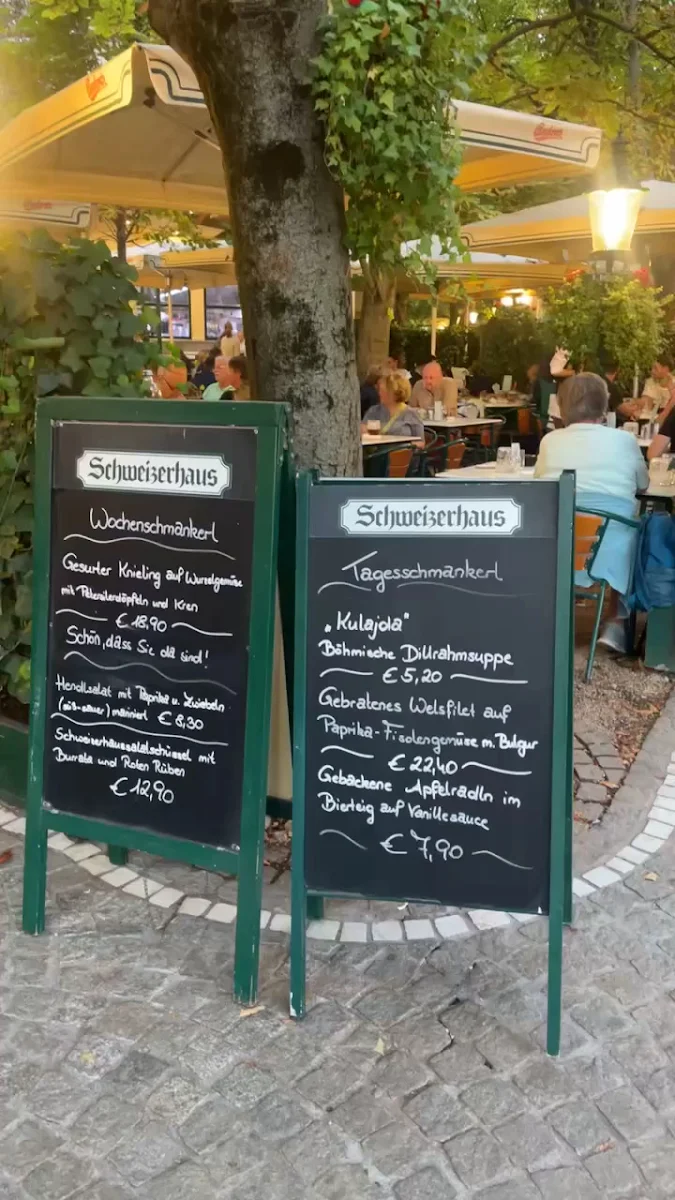 Schweizerhaus
Wochenschmankerl
Gesurter Knieling auf Wurzelgemüse
mit Petersilerdäpfeln und Kren
€ 18,90
Schön, dass Sie da sind!
Hendlsalat mit Paprika u. Zwiebeln
(süß-sauer) mariniert € 8,30
Schweizerhaussalatschüssel mit
Burrata und Roten Rüben
€ 12,90
Schweizerhaus
Tagesschmankerl
„Kulajda"
Böhmische Dillrahmsuppe
€ 5,20
Gebratenes Welsfilet auf
Paprika-Fisolengemüse m. Bulgur
€ 22,40
Gebackene Apfelradln im
Bierteig auf Vanillesauce
€ 7,90